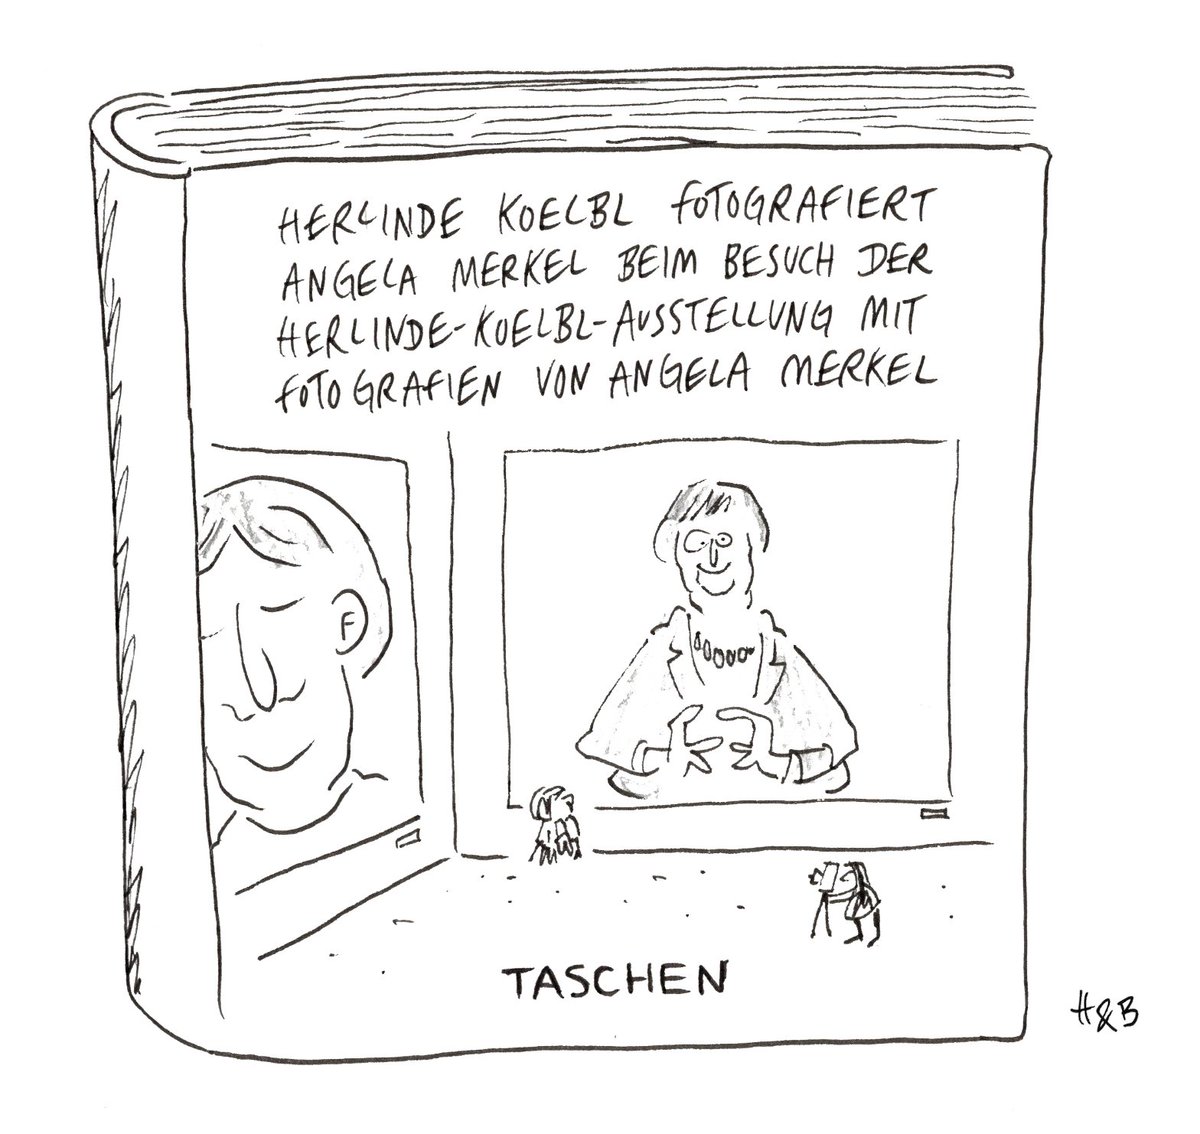 HERLINDE KOELBL FOTOGRAFIERT
ANGELA MERKEL BEIM BESUCH DER
HERLINDE-KOELBL-AUSSTELLUNG MIT
FOTOGRAFIEN VON ANGELA MERKEL
TASCHEN
H&B